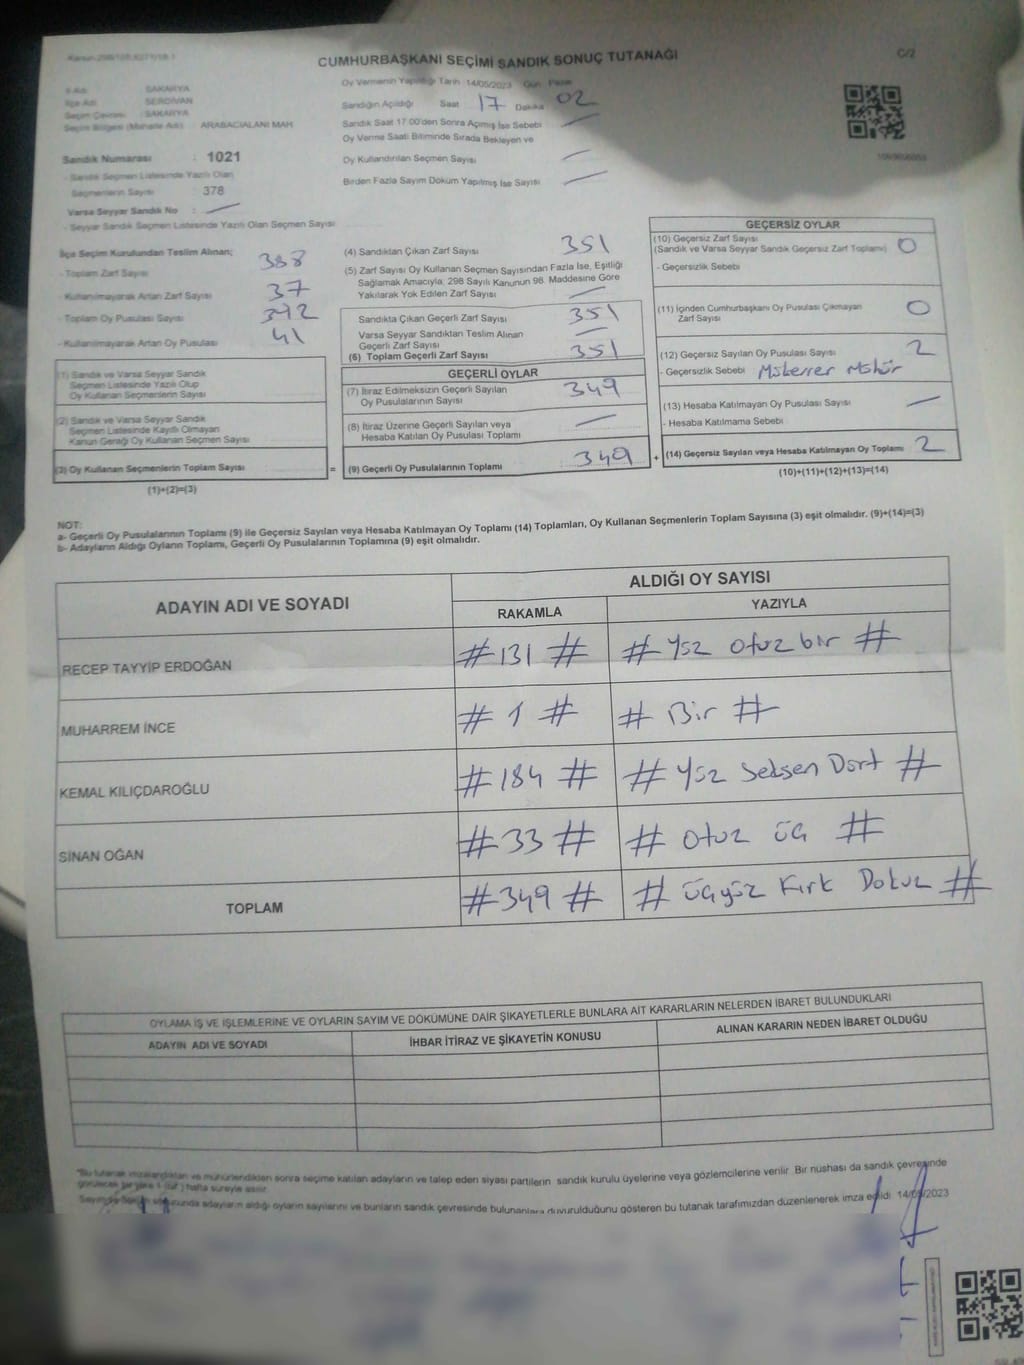 CUMHURBAŞKANI SEÇİMİ SANDIK SONUÇ TUTANAĞI
C/2
İl Adı : SAKARYA
İlçe Adı : SERDİVAN
Seçim Çevresi : SAKARYA
Seçim Bölgesi (Mahalle Adı) : ARABACIALANI MAH
Sandık Numarası : 1021
- Sandık Seçmen Listesinde Yazılı Olan
Seçmenlerin Sayısı : 378
Varsa Seyyar Sandık No :
- Seyyar Sandık Seçmen Listesinde Yazılı Olan Seçmen Sayısı
Oy Vermenin Yapıldığı Tarih 14/05/2023 Gün Pazar
Sandığın Açıldığı Saat 17 Dakika 02
Sandık Saat 17.00'den Sonra Açılmış İse Sebebi
Oy Verme Saati Bitiminde Sırada Bekleyen ve
Oy Kullandırılan Seçmen Sayısı
Birden Fazla Sayım Döküm Yapılmış İse Sayısı
İlçe Seçim Kurulundan Teslim Alınan;
- Toplam Zarf Sayısı 388
- Kullanılmayarak Artan Zarf Sayısı 37
- Toplam Oy Pusulası Sayısı 392
- Kullanılmayarak Artan Oy Pusulası 41
(1) Sandık ve Varsa Seyyar Sandık
Seçmen Listesinde Yazılı Olup
Oy Kullanan Seçmenlerin Sayısı
(2) Sandık ve Varsa Seyyar Sandık
Seçmen Listesinde Kayıtlı Olmayan
Kanun Gereği Oy Kullanan Seçmen Sayısı
(3) Oy Kullanan Seçmenlerin Toplam Sayısı =
(1)+(2)=(3)
(4) Sandıktan Çıkan Zarf Sayısı 351
(5) Zarf Sayısı Oy Kullanan Seçmen Sayısından Fazla İse, Eşitliği
Sağlamak Amacıyla, 298 Sayılı Kanunun 98. Maddesine Göre
Yakılarak Yok Edilen Zarf Sayısı
Sandıkta Çıkan Geçerli Zarf Sayısı 351
Varsa Seyyar Sandıktan Teslim Alınan
Geçerli Zarf Sayısı
(6) Toplam Geçerli Zarf Sayısı 351
GEÇERLİ OYLAR
(7) İtiraz Edilmeksizin Geçerli Sayılan
Oy Pusulalarının Sayısı 349
(8) İtiraz Üzerine Geçerli Sayılan veya
Hesaba Katılan Oy Pusulası Toplamı
(9) Geçerli Oy Pusulalarının Toplamı 349 +
GEÇERSİZ OYLAR
(10) Geçersiz Zarf Sayısı
(Sandık ve Varsa Seyyar Sandık Geçersiz Zarf Toplamı) 0
- Geçersizlik Sebebi
(11) İçinden Cumhurbaşkanı Oy Pusulası Çıkmayan
Zarf Sayısı 0
(12) Geçersiz Sayılan Oy Pusulası Sayısı 2
- Geçersizlik Sebebi Mükerrer Mühür
(13) Hesaba Katılmayan Oy Pusulası Sayısı
- Hesaba Katılmama Sebebi
(14) Geçersiz Sayılan veya Hesaba Katılmayan Oy Toplamı 2
(10)+(11)+(12)+(13)=(14)
NOT:
a- Geçerli Oy Pusulalarının Toplamı (9) ile Geçersiz Sayılan veya Hesaba Katılmayan Oy Toplamı (14) Toplamları, Oy Kullanan Seçmenlerin Toplam Sayısına (3) eşit olmalıdır. (9)+(14)=(3)
b- Adayların Aldığı Oyların Toplamı, Geçerli Oy Pusulalarının Toplamına (9) eşit olmalıdır.
ADAYIN ADI VE SOYADI
ALDIĞI OY SAYISI
RAKAMLA YAZIYLA
RECEP TAYYİP ERDOĞAN #131 # # Yüz otuz bir #
MUHARREM İNCE # 1 # # Bir #
KEMAL KILIÇDAROĞLU #184 # # Yüz Seksen Dört #
SİNAN OĞAN #33 # # Otuz üç #
TOPLAM #349 # # üçyüz Kırk Dokuz #
OYLAMA İŞ VE İŞLEMLERİNE VE OYLARIN SAYIM VE DÖKÜMÜNE DAİR ŞİKAYETLERLE BUNLARA AİT KARARLARIN NELERDEN İBARET BULUNDUKLARI
ADAYIN ADI VE SOYADI İHBAR İTİRAZ VE ŞİKAYETİN KONUSU ALINAN KARARIN NEDEN İBARET OLDUĞU
*Bu tutanak imzalandıktan ve mühürlendikten sonra seçime katılan adayların ve talep eden siyasi partilerin sandık kurulu üyelerine veya gözlemcilerine verilir. Bir nüshası da sandık çevresinde
görülecek bir yere 1 (bir) hafta süreyle asılır.
adayların aldığı oyların sayılarını ve bunların sandık çevresinde bulunanlara duyurulduğunu gösteren bu tutanak tarafımızdan düzenlenerek imza edildi. 14/05/2023